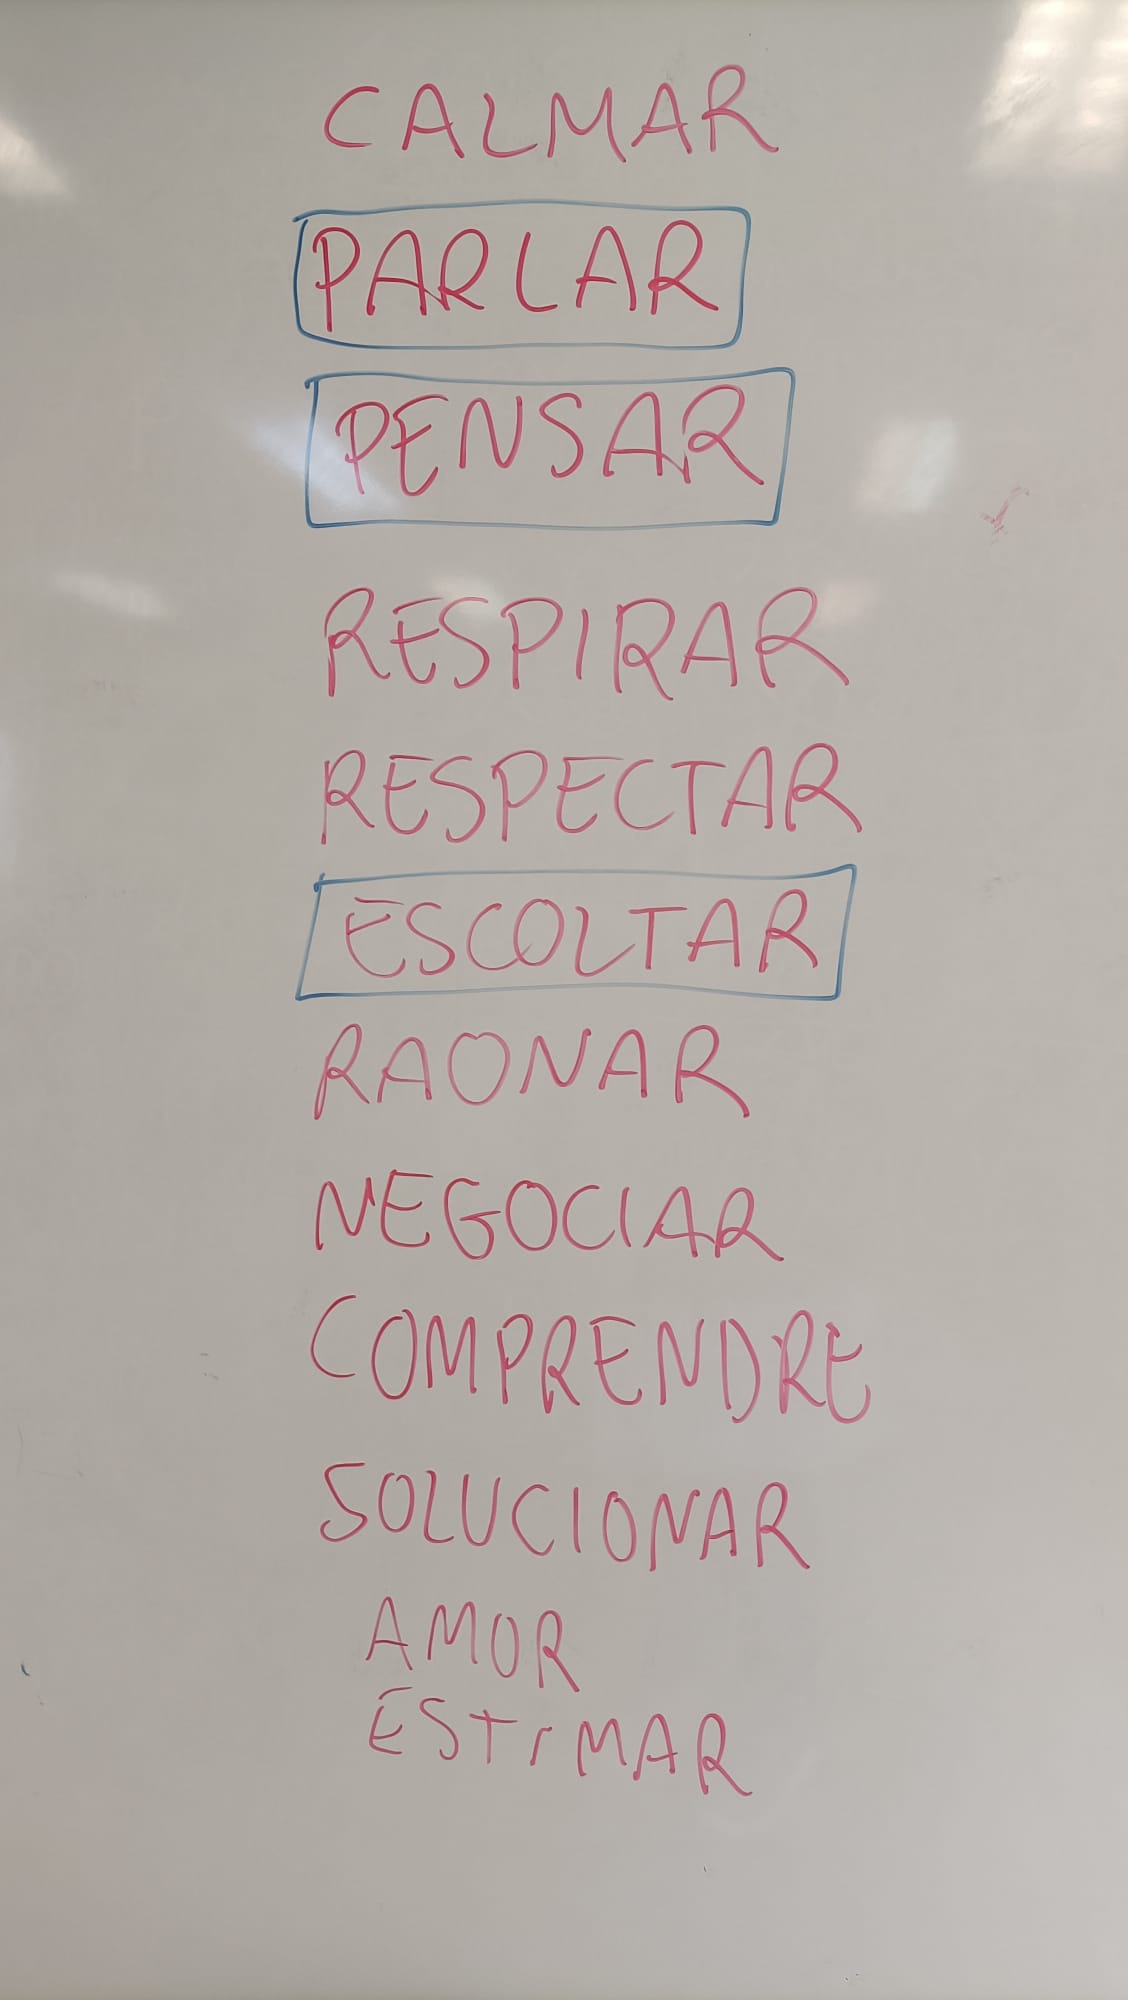 CALMAR
PARLAR
PENSAR
RESPIRAR
RESPECTAR
ESCOLTAR
RAONAR
NEGOCIAR
COMPRENDRE
SOLUCIONAR
AMOR
ESTIMAR